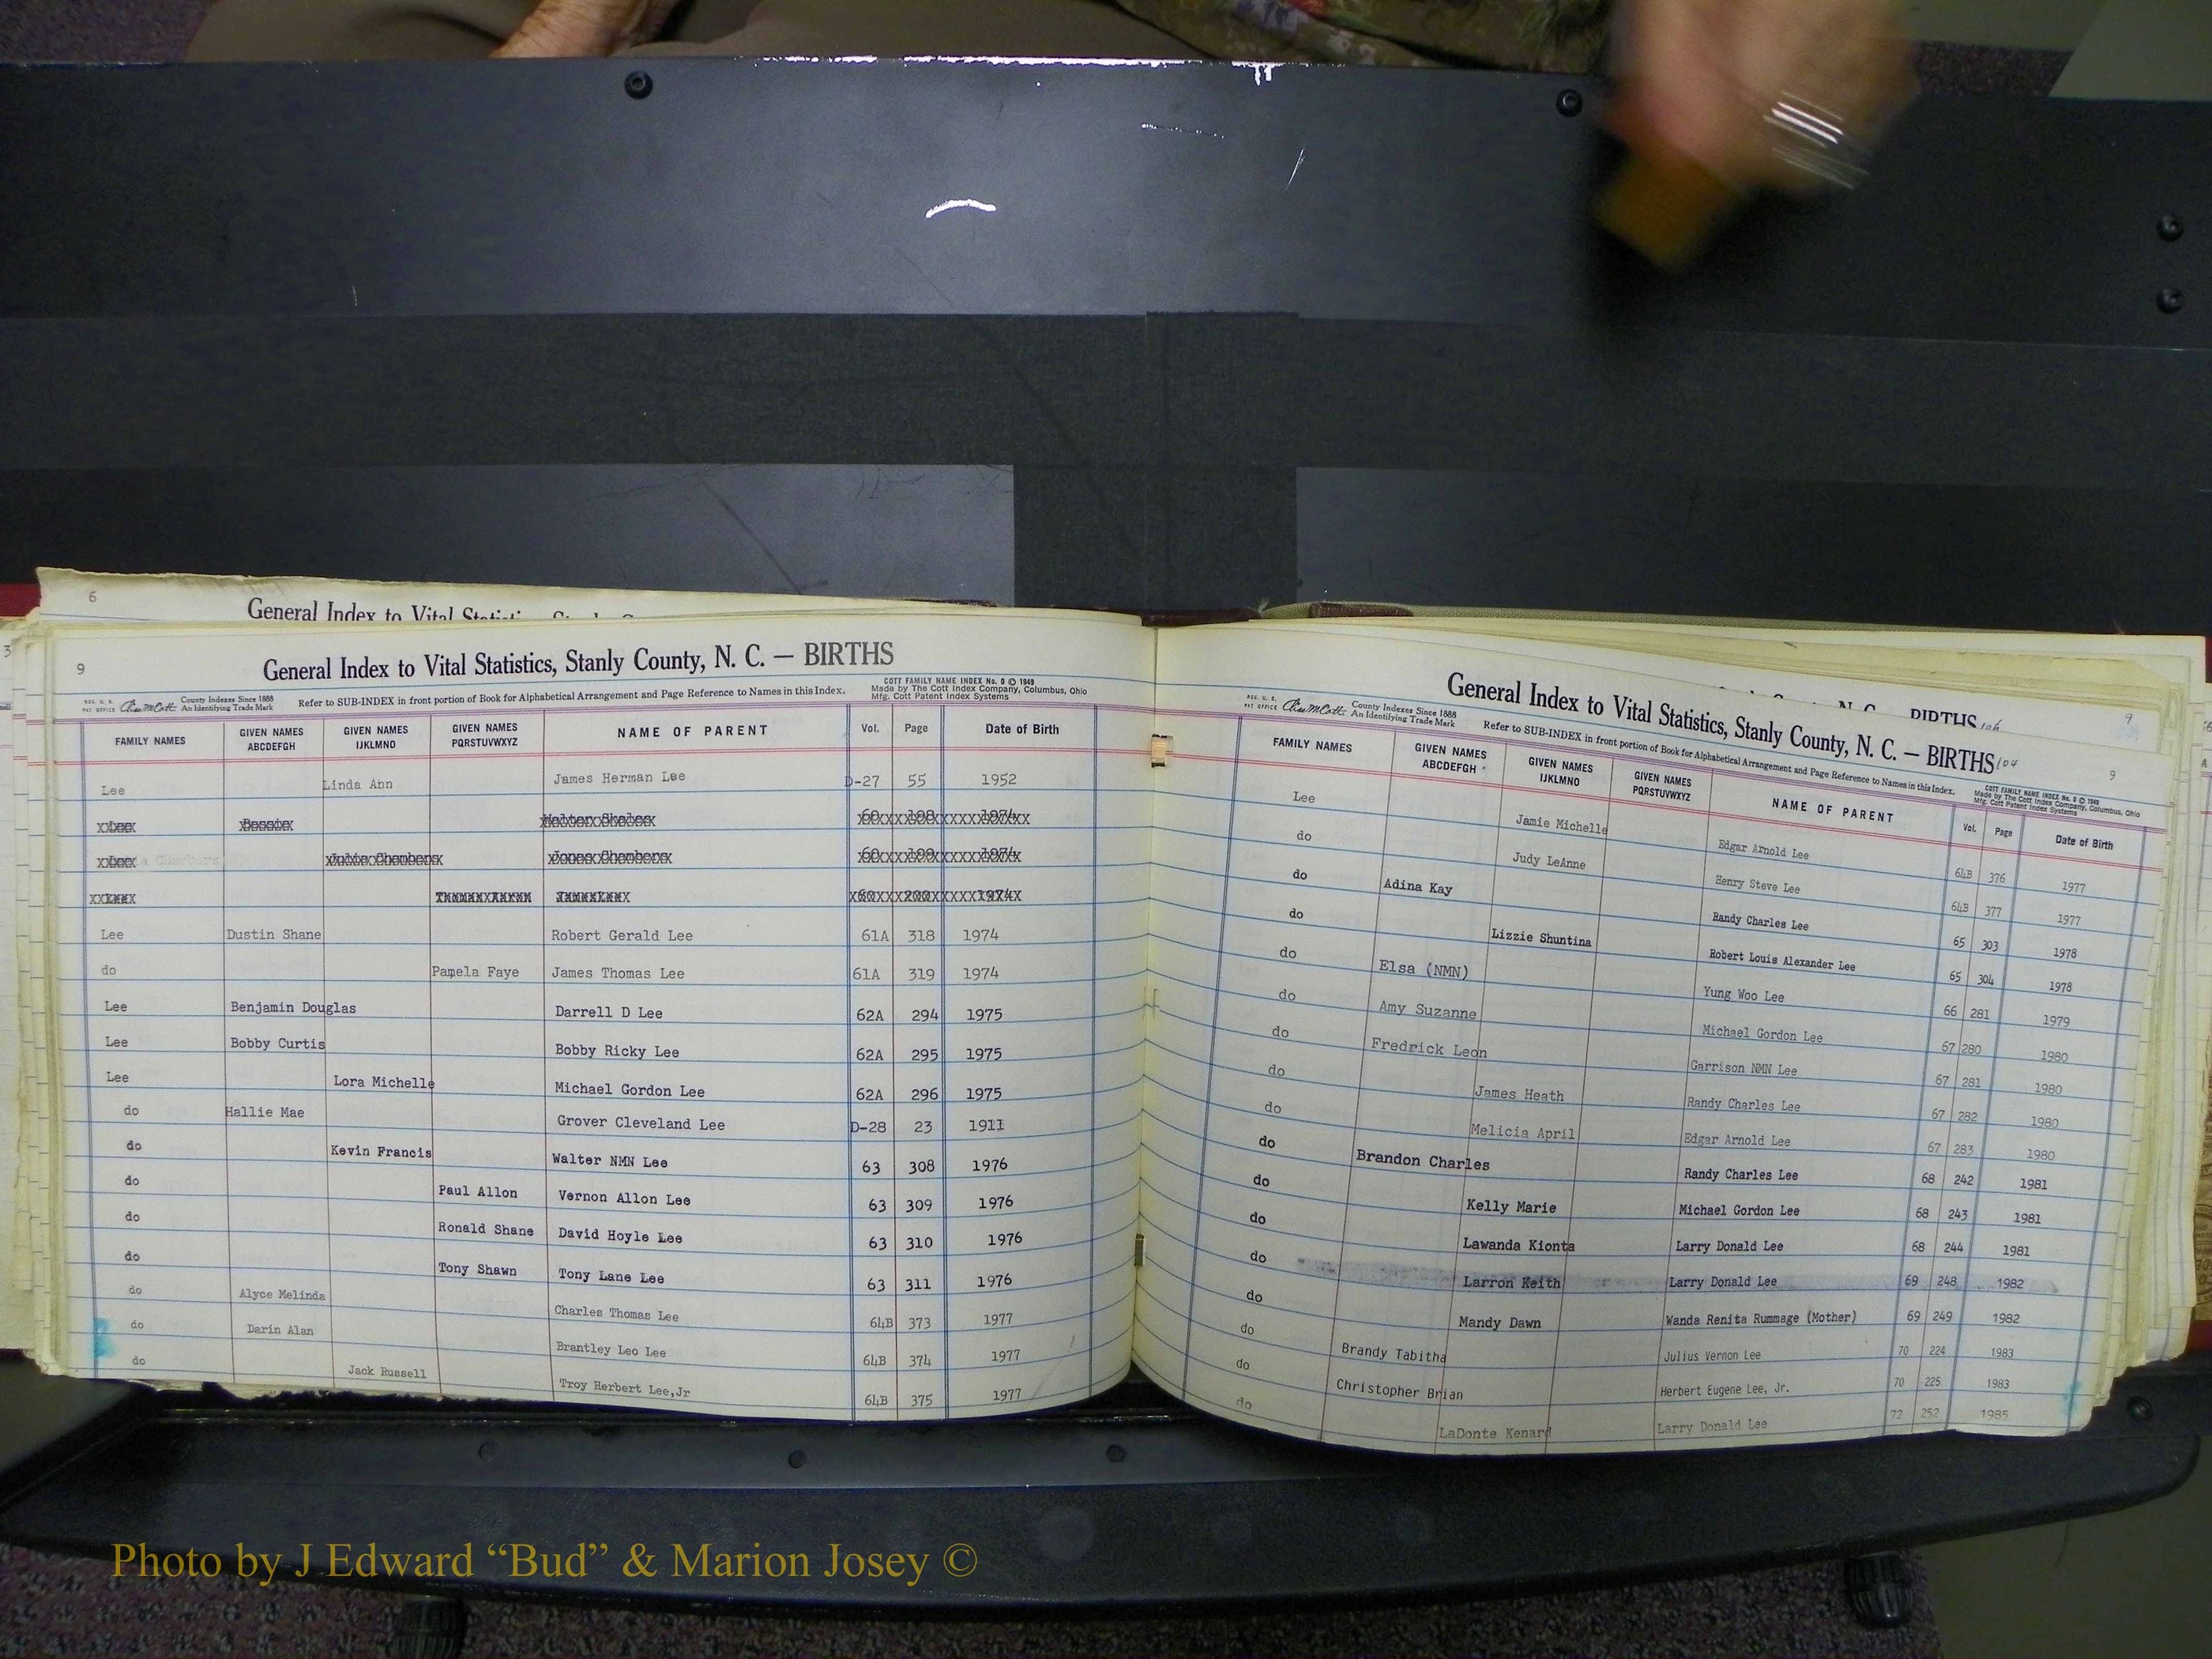 6
General Index to Vital Statistics
3
9
General Index to Vital Statistics, Stanly County, N. C. — BIRTHS
REG. U. S. PAT OFFICE County Indexes Since 1888 An Identifying Trade Mark
Refer to SUB-INDEX in front portion of Book for Alphabetical Arrangement and Page Reference to Names in this Index.
COTT FAMILY NAME INDEX No. 8 © 1949
Made by The Cott Index Company, Columbus, Ohio
Mfg. Cott Patent Index Systems
FAMILY NAMES GIVEN NAMES ABCDEFGH GIVEN NAMES IJKLMNO GIVEN NAMES PQRSTUVWXYZ NAME OF PARENT Vol. Page Date of Birth
Lee Linda Ann James Herman Lee D-27 55 1952
Lee Dustin Shane Robert Gerald Lee 61A 318 1974
do Pamela Faye James Thomas Lee 61A 319 1974
Lee Benjamin Douglas Darrell D Lee 62A 294 1975
Lee Bobby Curtis Bobby Ricky Lee 62A 295 1975
Lee Lora Michelle Michael Gordon Lee 62A 296 1975
do Hallie Mae Grover Cleveland Lee D-28 23 1911
do Kevin Francis Walter NMN Lee 63 308 1976
do Paul Allon Vernon Allon Lee 63 309 1976
do Ronald Shane David Hoyle Lee 63 310 1976
do Tony Shawn Tony Lane Lee 63 311 1976
do Alyce Melinda Charles Thomas Lee 64B 373 1977
do Darin Alan Brantley Leo Lee 64B 374 1977
do Jack Russell Troy Herbert Lee,Jr 64B 375 1977
N. C. — BIRTHS 106
9
General Index to Vital Statistics, Stanly County, N. C. — BIRTHS 104
9
REG. U. S. PAT OFFICE County Indexes Since 1888 An Identifying Trade Mark
Refer to SUB-INDEX in front portion of Book for Alphabetical Arrangement and Page Reference to Names in this Index.
COTT FAMILY NAME INDEX No. 8 © 1949
Made by The Cott Index Company, Columbus, Ohio
Mfg. Cott Patent Index Systems
FAMILY NAMES GIVEN NAMES ABCDEFGH GIVEN NAMES IJKLMNO GIVEN NAMES PQRSTUVWXYZ NAME OF PARENT Vol. Page Date of Birth
Lee Jamie Michelle Edgar Arnold Lee 64B 376 1977
do Judy LeAnne Henry Steve Lee 64B 377 1977
do Adina Kay Randy Charles Lee 65 303 1978
do Lizzie Shuntina Robert Louis Alexander Lee 65 304 1978
do Elsa (NMN) Yung Woo Lee 66 281 1979
do Amy Suzanne Michael Gordon Lee 67 280 1980
do Fredrick Leon Garrison NMN Lee 67 281 1980
do James Heath Randy Charles Lee 67 282 1980
do Melicia April Edgar Arnold Lee 67 283 1980
do Brandon Charles Randy Charles Lee 68 242 1981
do Kelly Marie Michael Gordon Lee 68 243 1981
do Lawanda Kionta Larry Donald Lee 68 244 1981
do Larron Keith Larry Donald Lee 69 248 1982
do Mandy Dawn Wanda Renita Rummage (Mother) 69 249 1982
do Brandy Tabitha Julius Vernon Lee 70 224 1983
do Christopher Brian Herbert Eugene Lee, Jr. 70 225 1983
do LaDonte Kenard Larry Donald Lee 72 252 1985
Photo by J Edward “Bud” & Marion Josey ©